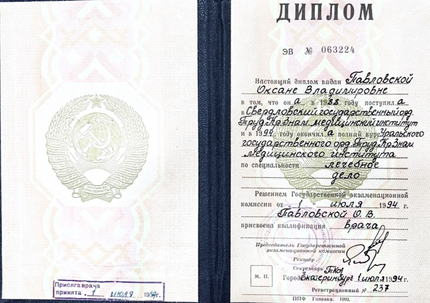 Присяга врача
принята 1 июля 1994г.
ДИПЛОМ
ЭВ № 063224
Настоящий диплом выдан Павловской
Оксане Владимировне
в том, что он а в 1988 году поступил а
в Свердловский государственный орд.
Труд.Кр.Знам. медицинский институт
и в 1994 году окончил а полный курс Уральского
государственного орд. Труд.Кр.Знам.
медицинского института
по специальности лечебное
дело
Решением Государственной экзаменационной
комиссии от 1 июля 1994 г.
Павловской О.В.
присвоена квалификация врача
Председатель Государственной
экзаменационной комиссии
Ректор
Секретарь
М. П. Город Екатеринбург 1 июля 1994г.
Регистрационный № 237